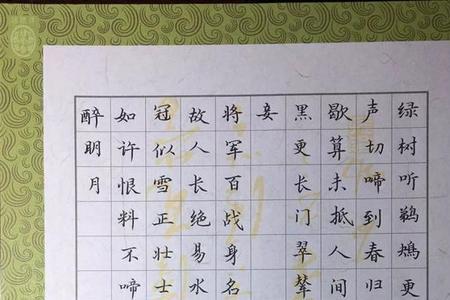 绿树听鹈鴂更
声切啼到春归
歇算未抵人间
黑更长门翠辇
妾
将军百战身名
故人长绝易水
冠似雪正壮士
如许恨料不啼
醉明月